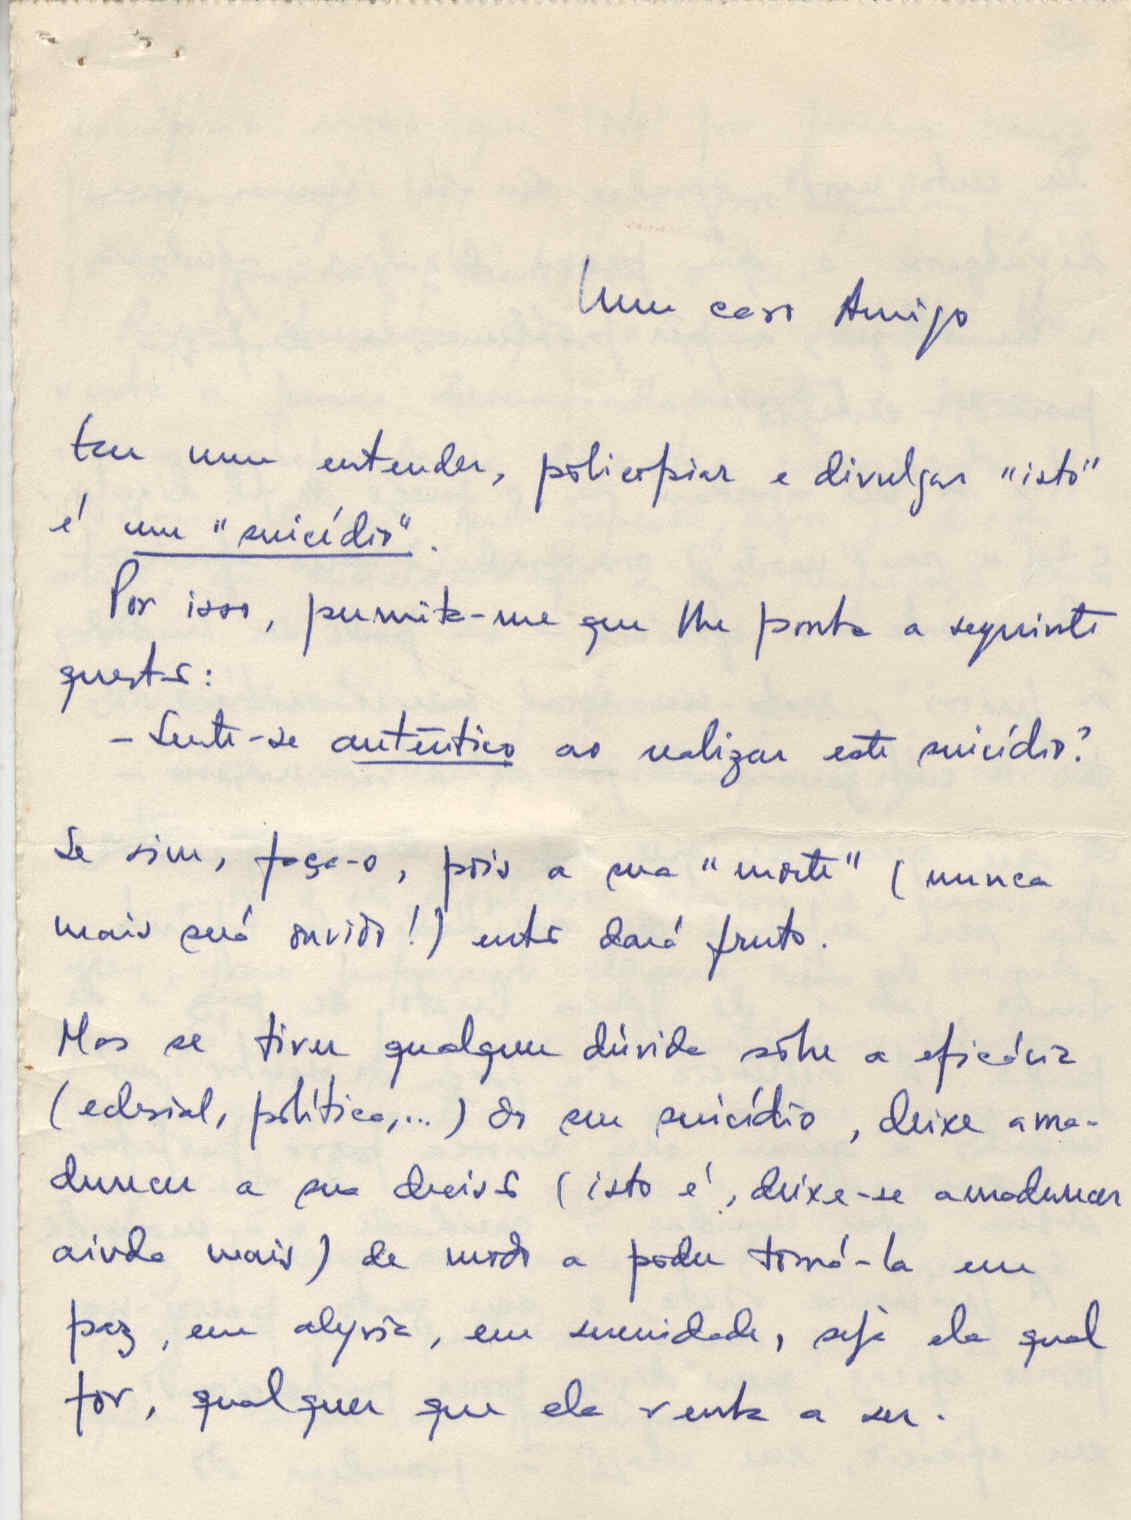 Meu caro Amigo
Em meu entender, policopiar e divulgar "isto"
é um "suicídio".
Por isso, permita-me que lhe ponha a seguinte
questão:
- Sente-se autêntico ao realizar este suicídio?
Se sim, faça-o, pois a sua "morte" (nunca
mais será ouvido!) então dará fruto.
Mas se tiver qualquer dúvida sôbre a eficácia
(eclesial, política,...) do seu suicídio, deixe ama-
durecer a sua decisão (isto é, deixe-se amadurecer
ainda mais) de modo a poder tomá-la em
paz, em alegria, em serenidade, seja ela qual
fôr, qualquer que ela venha a ser.